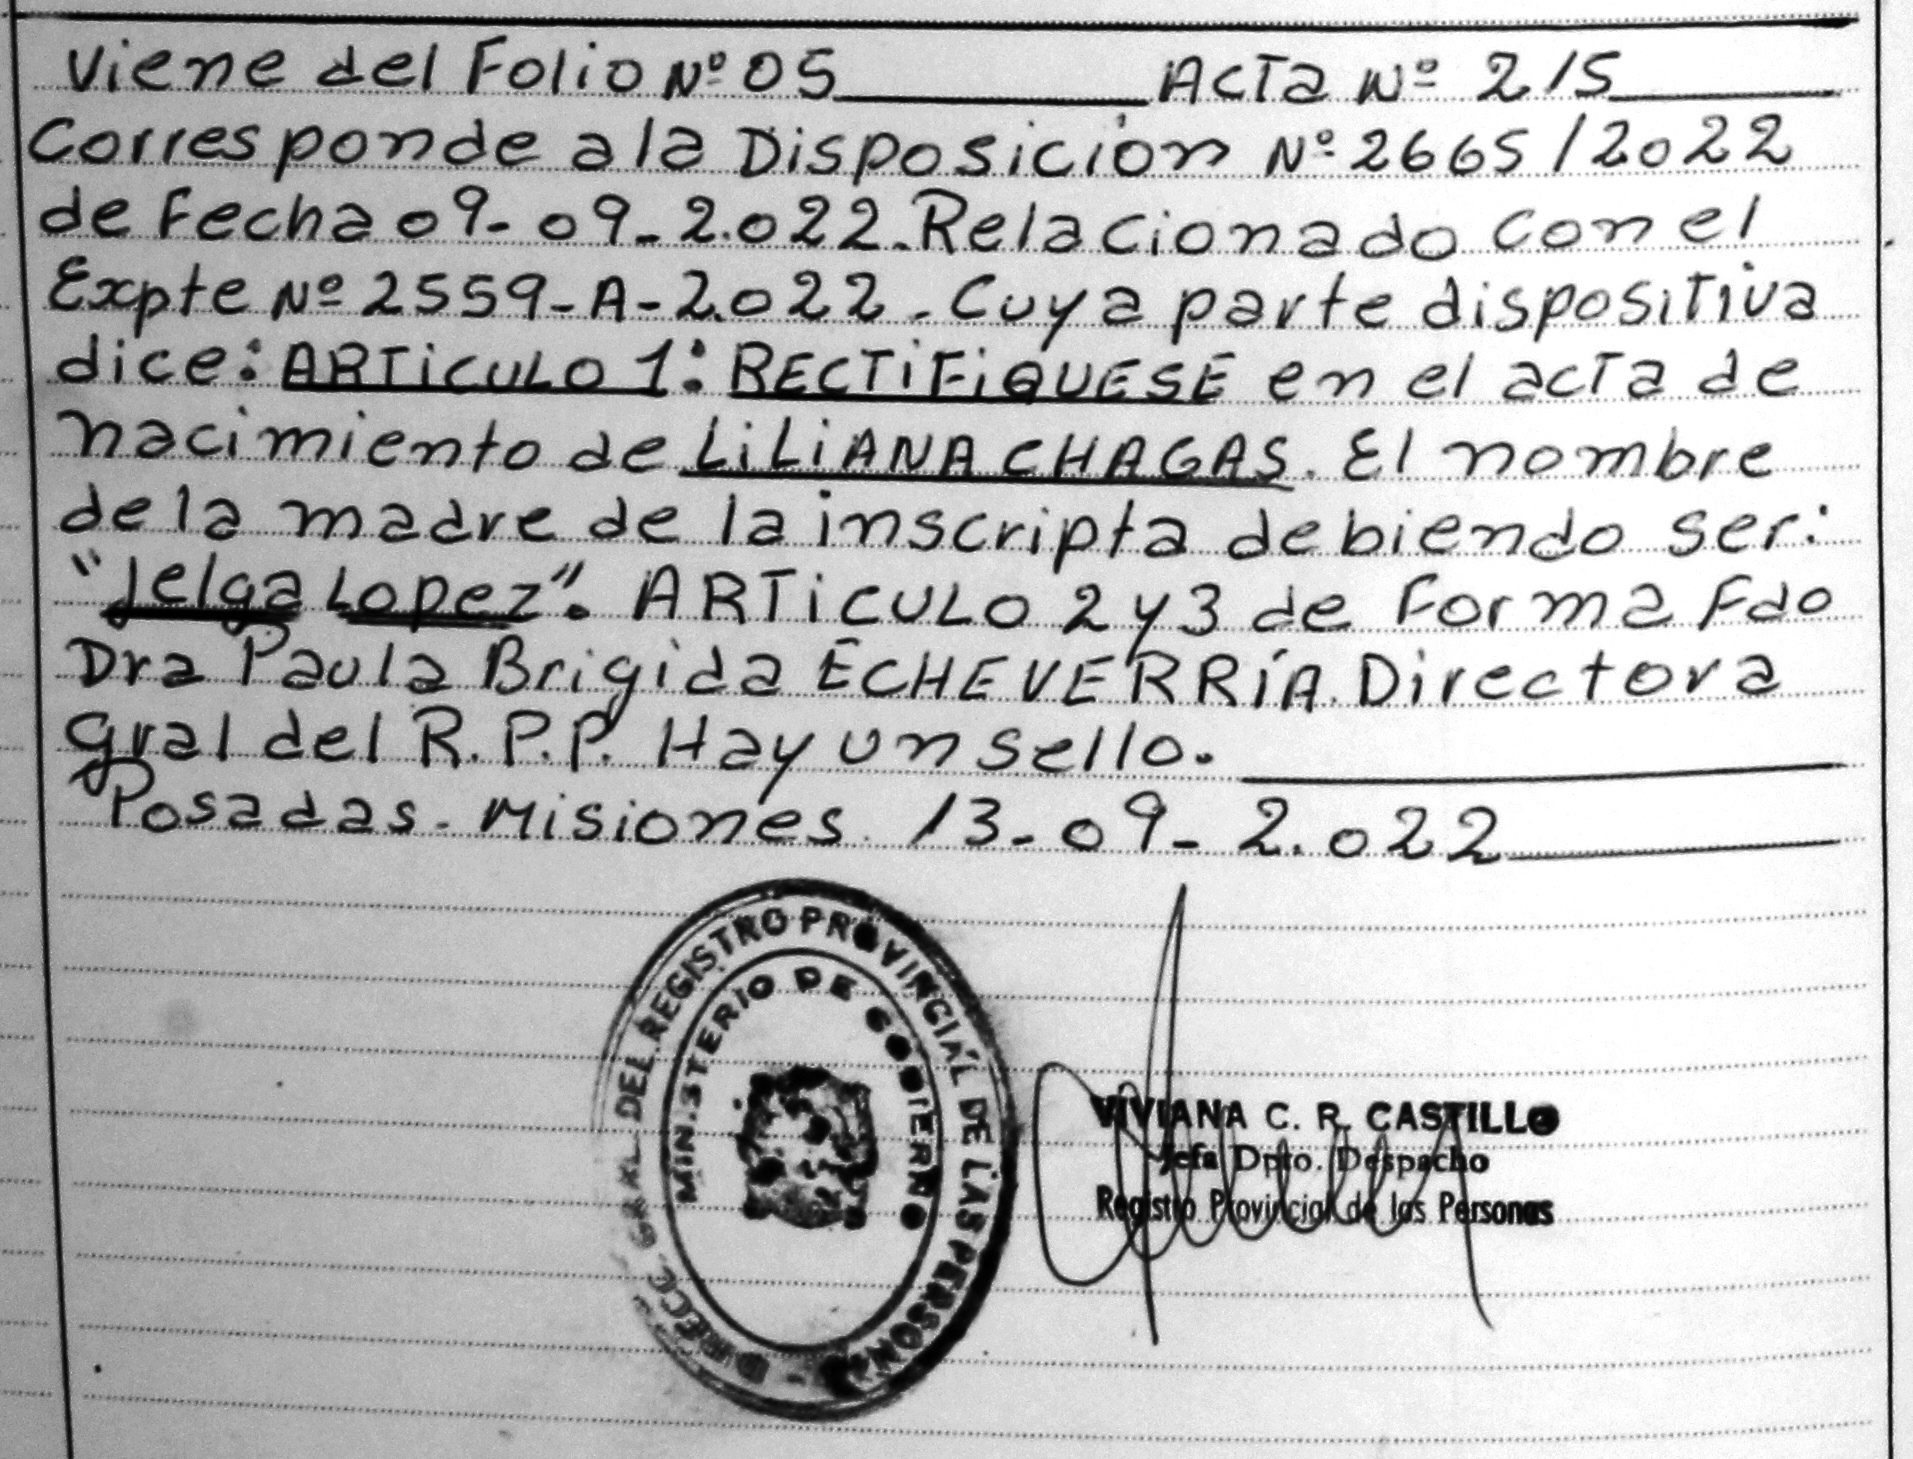 Viene del Folio Nº 05 Acta Nº 215
Corresponde a la Disposición Nº 2665/2022
de Fecha 09-09-2.022. Relacionado con el
Expte Nº 2559-A-2.022. Cuya parte dispositiva
dice: ARTiCULO 1: RECTiFiQUESE en el acta de
nacimiento de LiLiANA CHAGAS. El nombre
de la madre de la inscripta debiendo ser:
"Jelga Lopez". ARTiCULO 2 y 3 de Forma Fdo
Dra Paula Brigida ECHEVERRÍA. Directora
Gral del R.P.P. Hay un sello.
Posadas. Misiones 13-09-2.022
DIRECC. GRAL. DEL REGISTRO PROVINCIAL DE LAS PERSONAS
MINISTERIO DE GOBIERNO
VIVIANA C. R. CASTILLO
Jefa Dpto. Despacho
Registro Provincial de las Personas